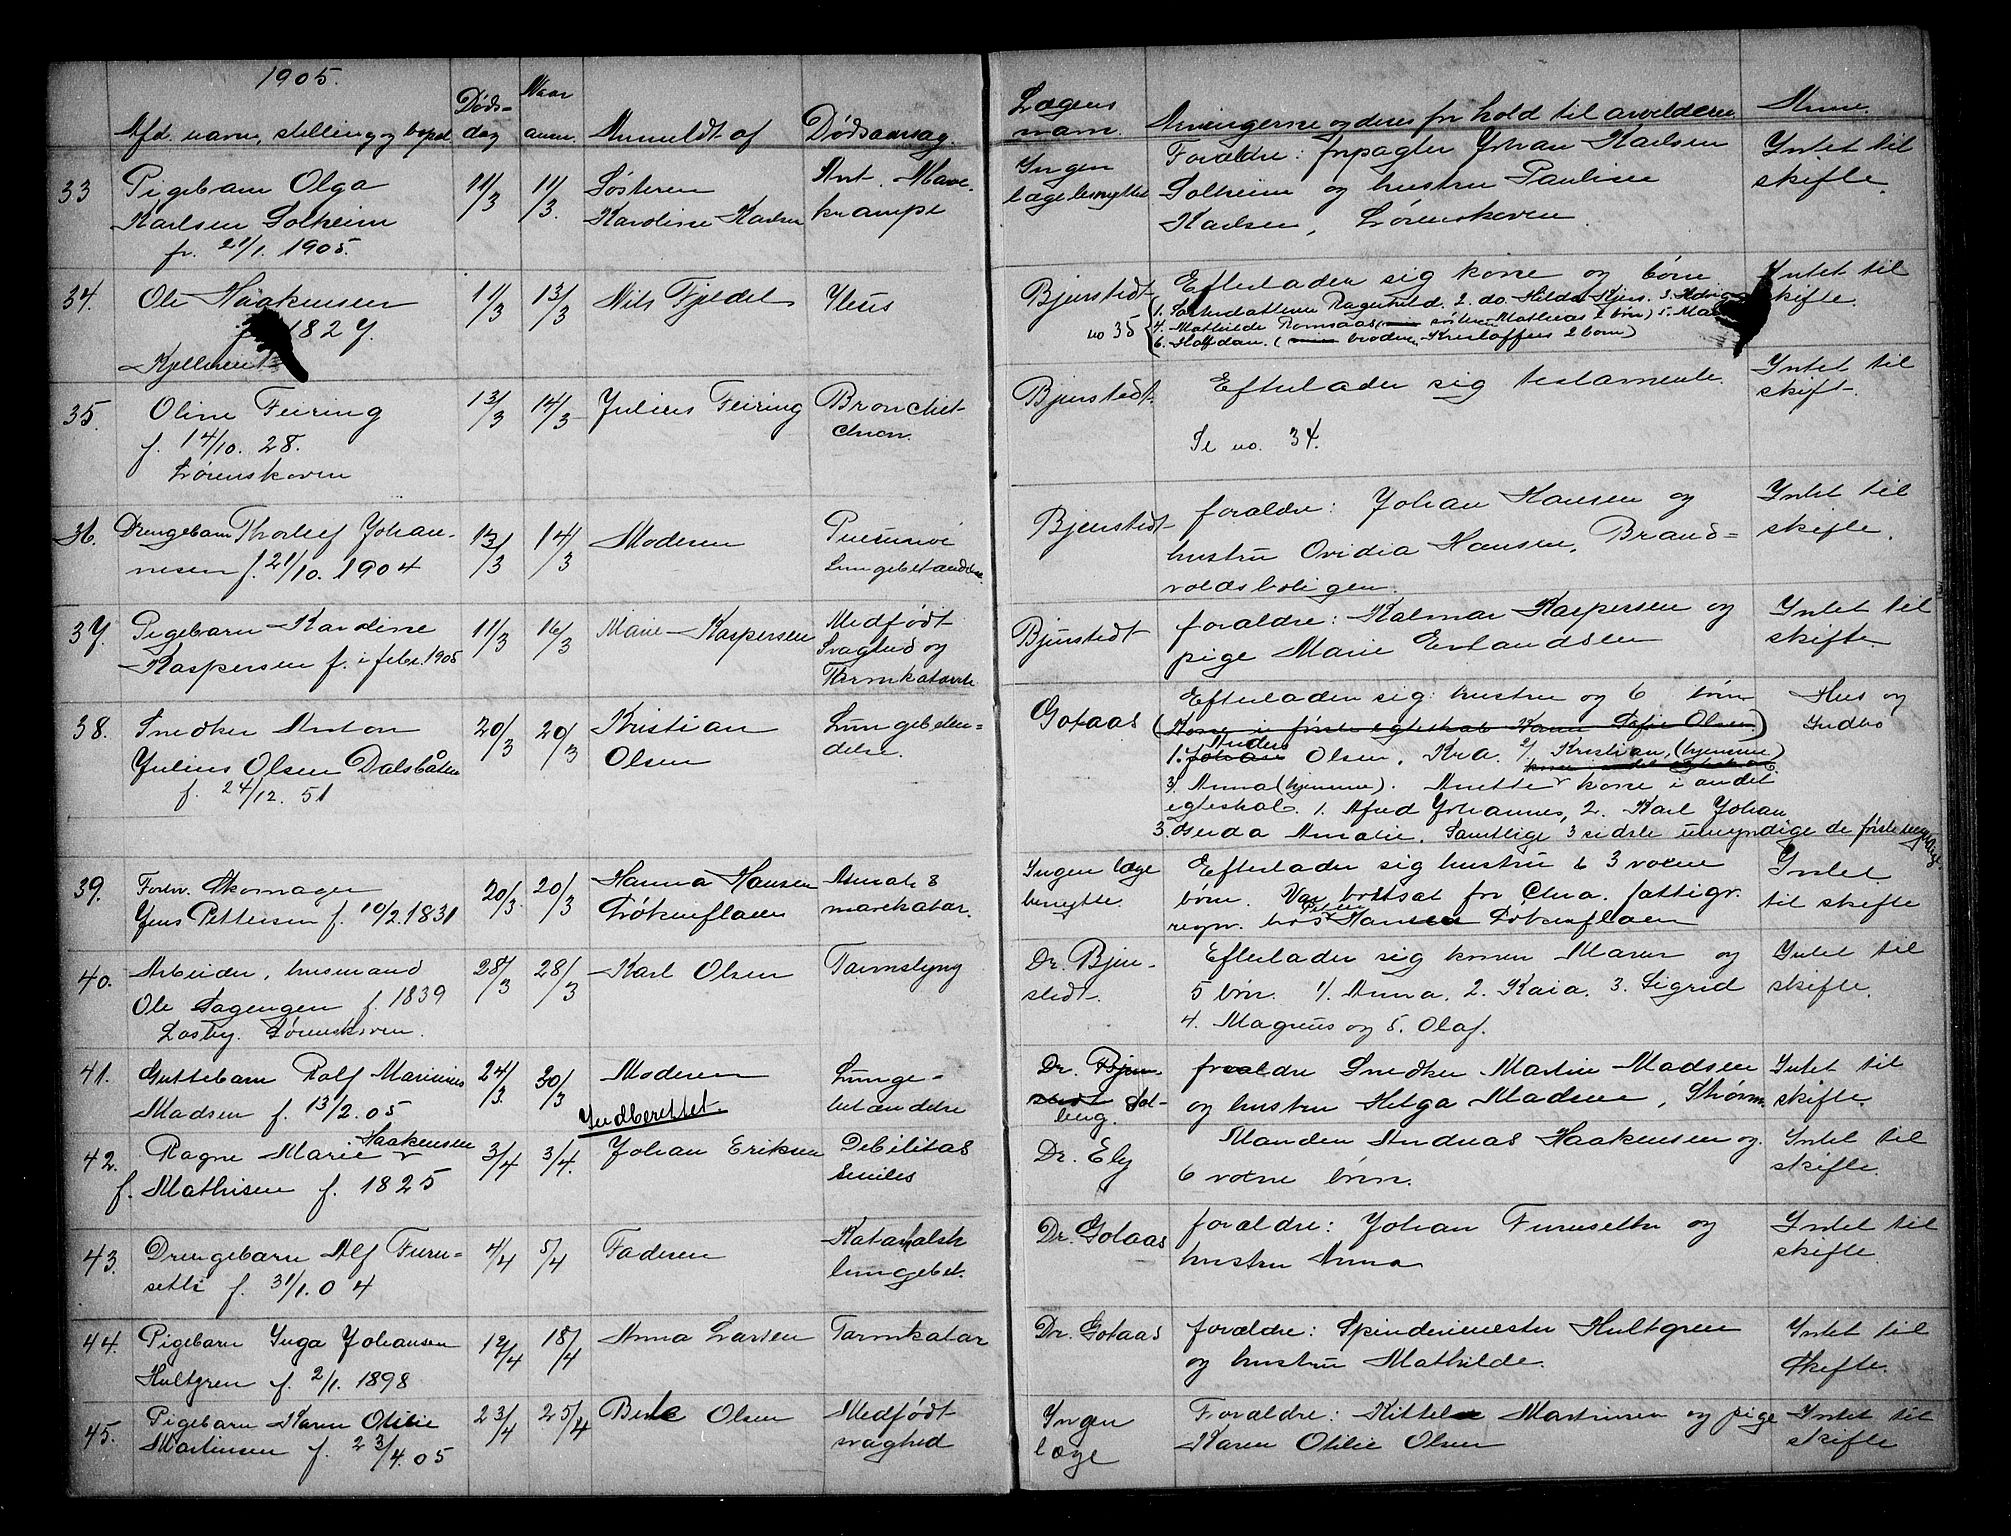 1905.
Afd. navn, stilling og bopæl
Døds-
dag
Naar
anm.
Anmeldt af
Dødsaarsag.
Lægens
navn.
Arvingerne og deres forhold til arveladeren
Anm.
33
Pigebarn Olga
Karlsen Solheim
f. 21/1. 1905.
11/3
11/3.
Søsteren
Karoline Karlsen
Ant. Mave-
krampe
Ingen
læge benyttet
Forældre: forpagter Johan Karlsen
Solheim og hustru Pauline
Karlsen, Lørenskoven
Intet til
skifte.
34.
Ole Haakensen
1827.
11/3
13/3
Nils Fjeldet
Ileus
Bjerstedt
Efterlader sig kone og børn
Intet til
skifte.
no 35
1. Søsterdatteren Ragnhild. 2. do. Hilda
4. Mathilde Romsaas (søsteren Mathias 2 børn) 5.
6. Halfdan. (broderen Kristoffers 2 born)
35.
Oline Feiring
f. 14/10. 28.
Lørenskoven
13/3
14/3
Julius Feiring
Bronchit
chron.
Bjerstedt.
Efterlader sig testamente.
Se no. 34.
Intet til
skift.
36.
Drengebarn Thorleif Johan-
nesen f. 21/10. 1904
13/3
14/3
Moderen
Pneumoni
Lungebetændelse.
Bjerstedt
forældre: Johan Hansen og
hustru Ovidia Hansen, Brand=
voldsboligen.
Intet til
skifte.
37.
Pigebarn Karoline
Kaspersen f. i febr. 1905
11/3
16/3
Marie Kaspersen
Medfødt
Svaghed og
Tarmkatarrh
Bjerstedt
forældre: Kalmar Kaspersen og
pige Marie Erlandsen
Intet til
skifte.
38.
Snedker Anton
Julius Olsen Dalsbåten
f. 24/12. 51
20/3
20/3
Kristian
Olsen
Lungebetæn=
delse.
Gotaas
Efterlader sig: hustru og 6 børn
(Kone i første egteskab Karen Sofie Olsen)
1. Johan Anders Olsen, Kra. 2/ Kristian, (hjemme)
3. Anna (hjemme). Anette kone i andet
egteskab. 1. Alfred Johannes, 2. Karl Johan
3. Gerda Amalie. Samtlige 3 sidste umyndige de første myndige.
Hus og
Indbo
39.
Forhv. Skomager
Jens Pettersen f. 10/2. 1831
20/3.
20/3
Hanna Hansen
Løkenflaen
Annals 8
mavekatar.
Ingen læge
benytte
Efterlader sig hustru & 3 voxne
børn. Var bortsat for Chra. fattigv.
regn. hos Hansen Løkenflaen
Intet
til skifte
40.
Arbeider, husmand
Ole Hagengen f. 1839
Losby. Lørenskoven.
28/3
28/3
Karl Olsen
Tarmslyng
Dr. Bjer-
stedt.
Efterlader sig konen Maren og
5 børn. 1. Anna. 2. Kaia. 3. Sigrid
4. Magnus og 5. Olaf.
Intet til
skifte.
41.
Guttebarn Rolf Marinius
Madsen f. 13/2. 05
24/3.
30/3
Moderen
Lunge-
betændelse
Indberettet.
Dr. Bjer-
stedt Sol-
berg.
forældre Snedker Martin Madsen
og hustru Helga Madsen, Strøm.
Intet til
skifte.
42.
Ragne Marie Haakensen
f. Mathisen f. 1825
3/4
3/4.
Johan Eriksen
Debilitas
senilis
Dr. Ely
Manden Andreas Haakensen og
6 voxne børn.
Intet til
skifte.
43.
Drengebarn Alf Furu=
setli f. 31/1. 04
4/4
5/4
Faderen
Katarhalsk
lungebet.
Dr. Gotaas
forældre: Johan Furusetlu og
hustru Anna
Intet til
skifte.
44.
Pigebarn Inga Johansen
Hultgren f. 2/1. 1898
12/4
18/4
Anna Larsen
Tarmkatar
Dr. Gotaas
forældre: Spinderimester Hultgren
og hustru Mathilde.
Intet til
Skifte.
45.
Pigebarn Karen Otilie
Martinsen f. 23/4. 05
23/4
25/4
Berte Olsen
Medfødt
svaghed
Ingen
læge
Forældre: Kittel Martinsen og pige
Karen Otilie Olsen
Intet til
skifte